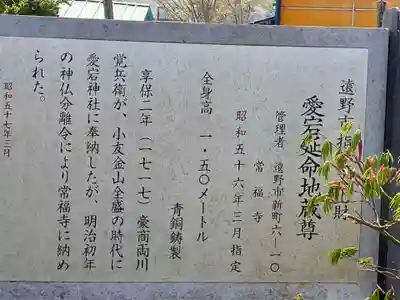 遠野市指
財
愛宕延命地蔵尊
管理者 遠野市新町六ー一〇
常福寺
昭和五十六年三月指定
全身高 一・五〇メートル
青銅鋳製
享保二年(一七一七)豪商両川
覚兵衛が、小友金山全盛の時代に
愛宕神社に奉納したが、明治初年
の神仏分離令により常福寺に納め
られた。
昭和五十七年三月